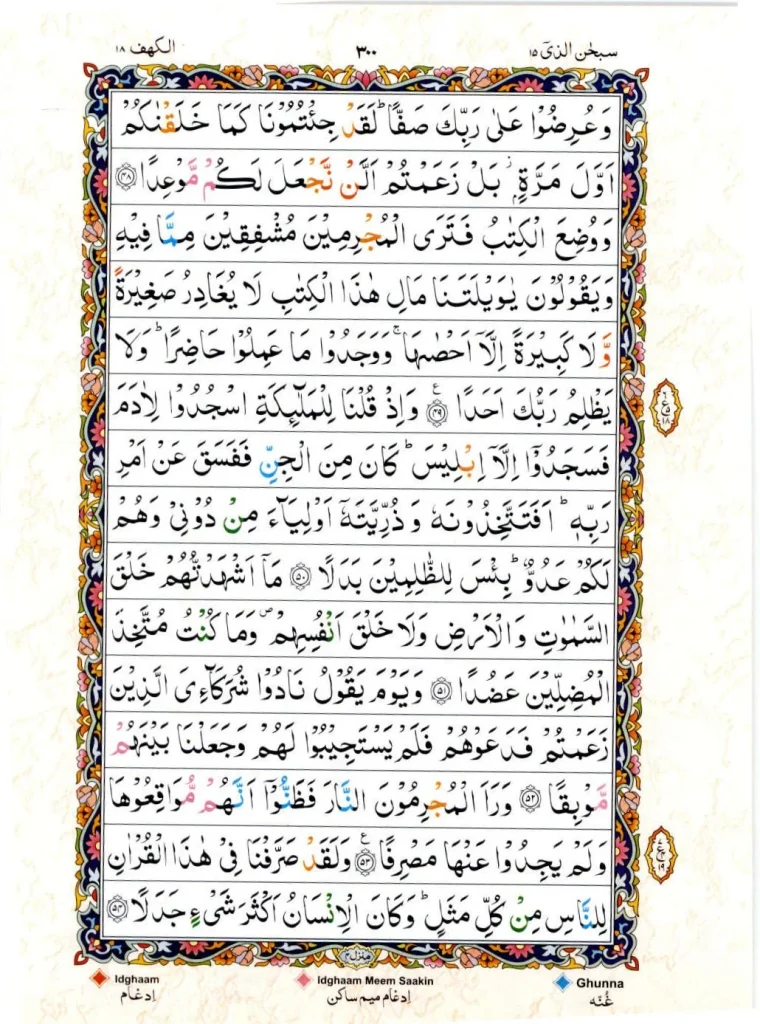 سبحٰن الذیٓ ۱۵
۳۰۰
الکهف ۱۸
وَعُرِضُوْا عَلٰی رَبِّكَ صَفًّا ؕ لَقَدْ جِئْتُمُوْنَا كَمَا خَلَقْنٰكُمْ
اَوَّلَ مَرَّةٍۭ ۫ بَلْ زَعَمْتُمْ اَلَّنْ نَّجْعَلَ لَكُمْ مَّوْعِدًا ﴿۴۸﴾
وَوُضِعَ الْكِتٰبُ فَتَرَی الْمُجْرِمِیْنَ مُشْفِقِیْنَ مِمَّا فِیْهِ
وَیَقُوْلُوْنَ یٰوَیْلَتَنَا مَالِ هٰذَا الْكِتٰبِ لَا یُغَادِرُ صَغِیْرَةً
وَّلَا كَبِیْرَةً اِلَّاۤ اَحْصٰىهَا ۚ وَوَجَدُوْا مَا عَمِلُوْا حَاضِرًا ؕ وَلَا
یَظْلِمُ رَبُّكَ اَحَدًا ﴿۴۹﴾ ع وَاِذْ قُلْنَا لِلْمَلٰٓىِٕكَةِ اسْجُدُوْا لِاٰدَمَ
فَسَجَدُوْۤا اِلَّاۤ اِبْلِیْسَ ؕ كَانَ مِنَ الْجِنِّ فَفَسَقَ عَنْ اَمْرِ
رَبِّهٖ ؕ اَفَتَتَّخِذُوْنَهٗ وَذُرِّیَّتَهٗۤ اَوْلِیَآءَ مِنْ دُوْنِیْ وَهُمْ
لَكُمْ عَدُوٌّ ؕ بِئْسَ لِلظّٰلِمِیْنَ بَدَلًا ﴿۵۰﴾ مَاۤ اَشْهَدْتُّهُمْ خَلْقَ
السَّمٰوٰتِ وَالْاَرْضِ وَلَا خَلْقَ اَنْفُسِهِمْ ۪ وَمَا كُنْتُ مُتَّخِذَ
الْمُضِلِّیْنَ عَضُدًا ﴿۵۱﴾ وَیَوْمَ یَقُوْلُ نَادُوْا شُرَكَآءِیَ الَّذِیْنَ
زَعَمْتُمْ فَدَعَوْهُمْ فَلَمْ یَسْتَجِیْبُوْا لَهُمْ وَجَعَلْنَا بَیْنَهُمْ
مَّوْبِقًا ﴿۵۲﴾ وَرَاَ الْمُجْرِمُوْنَ النَّارَ فَظَنُّوْۤا اَنَّهُمْ مُّوَاقِعُوْهَا
وَلَمْ یَجِدُوْا عَنْهَا مَصْرِفًا ﴿۵۳﴾ ع وَلَقَدْ صَرَّفْنَا فِیْ هٰذَا الْقُرْاٰنِ
لِلنَّاسِ مِنْ كُلِّ مَثَلٍ ؕ وَكَانَ الْاِنْسَانُ اَكْثَرَ شَیْءٍ جَدَلًا ﴿۵۴﴾
منزل ۴
Idghaam
اِدغام
Idghaam Meem Saakin
اِدغام میم ساکن
Ghunna
غُنّه